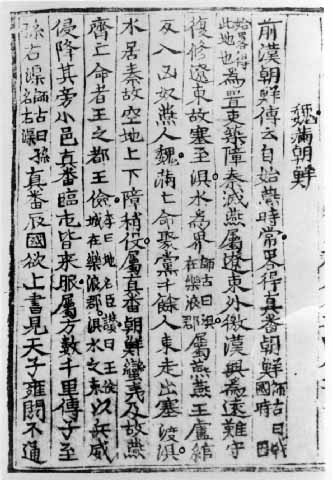 魏滿朝鮮
前漢朝鮮傳云自始燕時常畧得真番朝鮮師古曰戰國時因
始畧得此地也為置吏築障秦滅燕屬遼東外徼漢興為遠難守
復修遼東故塞至浿水為界師古曰浿在樂浪郡屬燕燕王盧綰
反入凶奴燕人魏滿亡命聚黨千餘人東走出塞渡浿
水居秦故空地上下障稍役屬真番朝鮮蠻夷及故燕
齊亡命者王之都王儉李曰地名臣讚曰王儉城在樂浪郡浿水之東以兵威
侵降其旁小邑真番臨屯皆來服屬方數千里傳子至
孫右渠師古曰孫名右渠真番辰國欲上書見天子雍閼不通